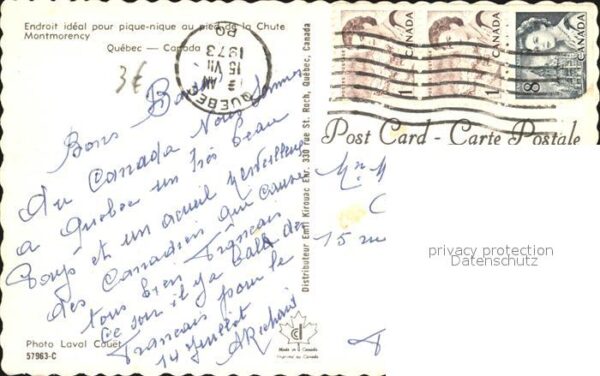 Endroit idéal pour pique-nique au pied de la Chute
Montmorency
Québec — Canada
3€
QUEBEC
AM
15 VII
1973
PQ
CANADA
1
CANADA
1
CANADA
8
Post Card - Carte Postale
Bons Baisers
du Canada Nous sommes
a Quebec un très beau
Pays et un acueil merveilleux
des Canadien qui cause
tous bien Francais
Ce soir il y a ball des
Francais pour le
14 Juillet
ARichard
15
Distributeur Emil Kirouac Enr. 330 rue St. Roch, Québec, Canada
privacy protection
Datenschutz
Photo Laval Couët
57963-C
Made in Canada
Imprimé au Canada